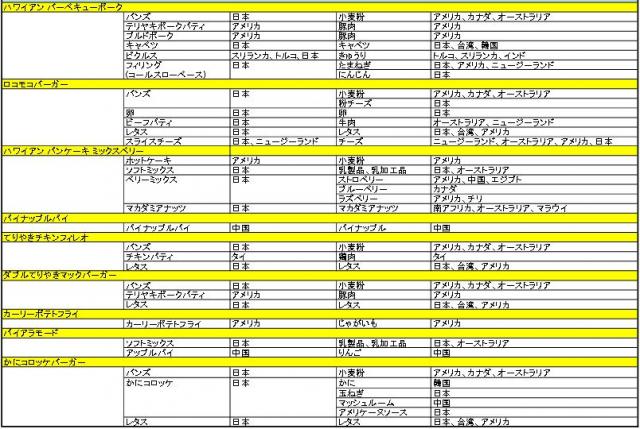 ハワイアン バーベキューポーク
バンズ 日本 小麦粉 アメリカ、カナダ、オーストラリア
テリヤキポークパティ アメリカ 豚肉 アメリカ
プルドポーク アメリカ 豚肉 アメリカ
キャベツ 日本 キャベツ 日本、台湾、韓国
ピクルス スリランカ、トルコ、日本 きゅうり トルコ、スリランカ、インド
フィリング 日本 たまねぎ 日本、アメリカ、ニュージーランド
(コールスローベース) にんじん 日本
ロコモコバーガー
バンズ 日本 小麦粉 アメリカ、カナダ、オーストラリア
粉チーズ 日本
卵 日本 卵 日本
ビーフパティ 日本 牛肉 オーストラリア、ニュージーランド
レタス 日本 レタス 日本、台湾、アメリカ
スライスチーズ 日本、ニュージーランド チーズ ニュージーランド、オーストラリア、アメリカ、日本
ハワイアン パンケーキ ミックスベリー
ホットケーキ アメリカ 小麦粉 アメリカ
ソフトミックス 日本 乳製品、乳加工品 日本、オーストラリア
ベリーミックス 日本 ストロベリー アメリカ、中国、エジプト
ブルーベリー カナダ
ラズベリー アメリカ、チリ
マカダミアナッツ 日本 マカダミアナッツ 南アフリカ、オーストラリア、マラウイ
パイナップルパイ
パイナップルパイ 中国 パイナップル 中国
てりやきチキンフィレオ
バンズ 日本 小麦粉 アメリカ、カナダ、オーストラリア
チキンパティ タイ 鶏肉 タイ
レタス 日本 レタス 日本、台湾、アメリカ
ダブルてりやきマックバーガー
バンズ 日本 小麦粉 アメリカ、カナダ、オーストラリア
テリヤキポークパティ アメリカ 豚肉 アメリカ
レタス 日本 レタス 日本、台湾、アメリカ
カーリーポテトフライ
カーリーポテトフライ アメリカ じゃがいも アメリカ
パイアラモード
ソフトミックス 日本 乳製品、乳加工品 日本、オーストラリア
アップルパイ 中国 りんご 中国
かにコロッケバーガー
バンズ 日本 小麦粉 アメリカ、カナダ、オーストラリア
かにコロッケ 日本 かに 韓国
玉ねぎ 日本
マッシュルーム 中国
アメリケーヌソース 日本
レタス 日本 レタス 日本、台湾、アメリカ